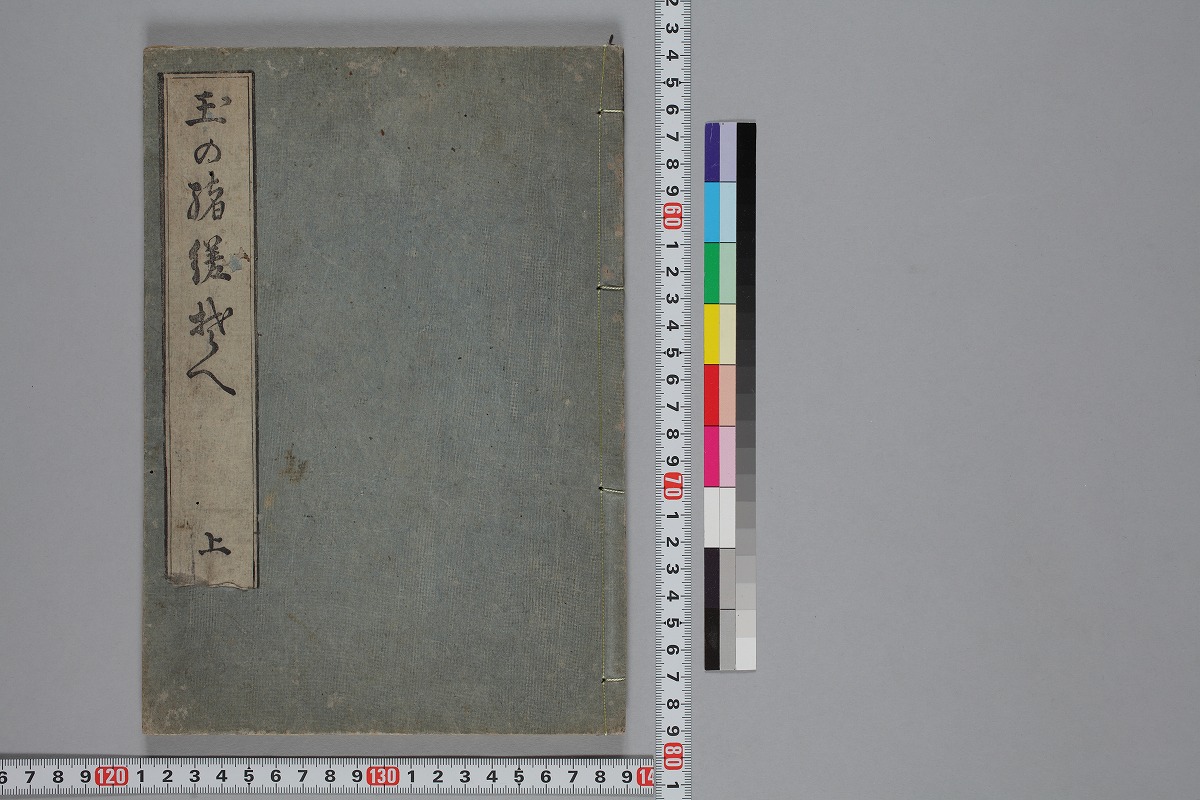 玉の緒縒そへ
上
2 3 4 5 6 7 8 9 60 1 2 3 4 5 6 7 8 9 70 1 2 3 4 5 6 7 8 9 80 1
6 7 8 9 120 1 2 3 4 5 6 7 8 9 130 1 2 3 4 5 6 7 8 9 14